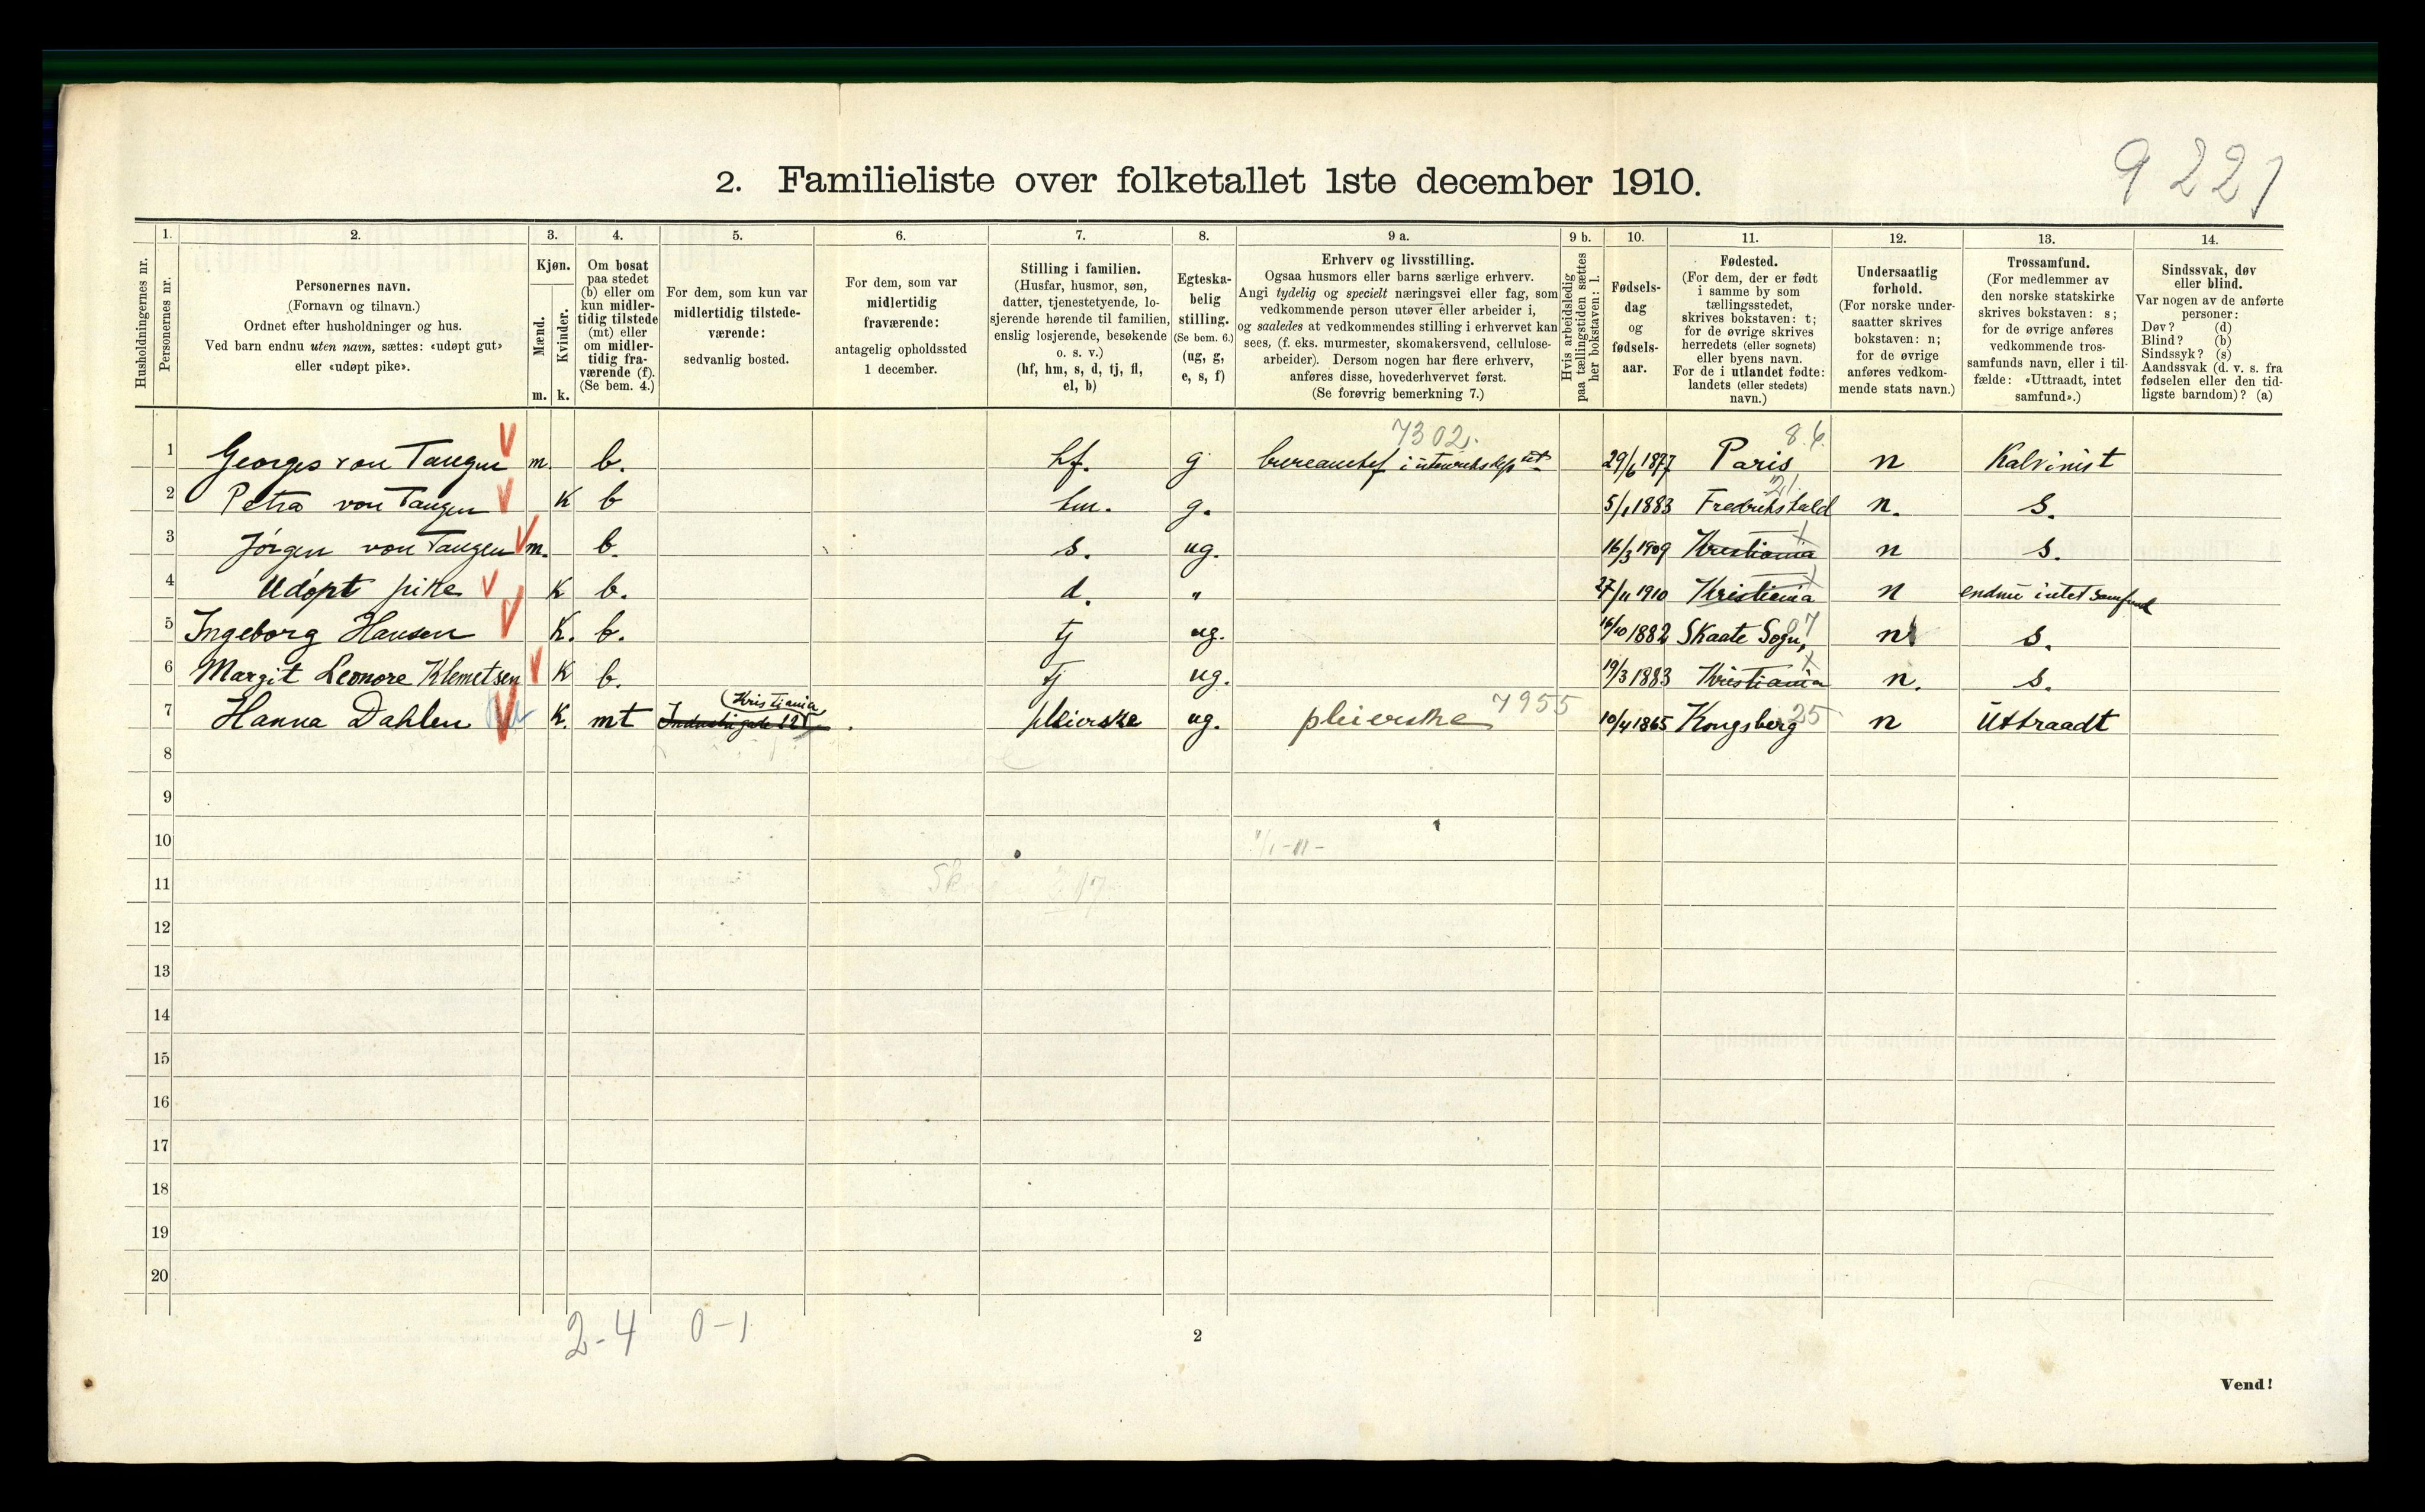 9221
2. Familieliste over folketallet 1ste december 1910.
Husholdningernes nr.
1.
Personernes nr.
2.
Personernes navn.
(Fornavn og tilnavn.)
Ordnet efter husholdninger og hus.
Ved barn endnu uten navn, sættes: «udøpt gut»
eller «udøpt pike».
3.
Kjøn.
Mænd.
Kvinder.
m. k.
4.
Om bosat
paa stedet
(b) eller om
kun midler-
tidig tilstede
(mt) eller
om midler-
tidig fra-
værende (f).
(Se bem. 4.)
5.
For dem, som kun var
midlertidig tilstede-
værende:
sedvanlig bosted.
6.
For dem, som var
midlertidig
fraværende:
antagelig opholdssted
1 december.
7.
Stilling i familien.
(Husfar, husmor, søn,
datter, tjenestetyende, lo-
sjerende hørende til familien,
enslig losjerende, besøkende
o. s. v.)
(hf, hm, s, d, tj, fl,
el, b)
8.
Egteska-
belig
stilling.
(Se bem. 6.)
(ug, g,
e, s, f)
9 a.
Erhverv og livsstilling.
Ogsaa husmors eller barns særlige erhverv.
Angi tydelig og specielt næringsvei eller fag, som
vedkommende person utøver eller arbeider i,
og saaledes at vedkommendes stilling i erhvervet kan
sees, (f. eks. murmester, skomakersvend, cellulose-
arbeider). Dersom nogen har flere erhverv,
anføres disse, hovederhvervet først.
(Se forøvrig bemerkning 7.)
9 b.
Hvis arbeidsledig
paa tællingstiden sættes
her bokstaven: l.
10.
Fødsels-
dag
og
fødsels-
aar.
11.
Fødested.
(For dem, der er født
i samme by som
tællingsstedet,
skrives bokstaven: t;
for de øvrige skrives
herredets (eller sognets)
eller byens navn.
For de i utlandet fødte:
landets (eller stedets)
navn.)
12.
Undersaatlig
forhold.
(For norske under-
saatter skrives
bokstaven: n;
for de øvrige
anføres vedkom-
mende stats navn.)
13.
Trossamfund.
(For medlemmer av
den norske statskirke
skrives bokstaven: s;
for de øvrige anføres
vedkommende tros-
samfunds navn, eller i til-
fælde: «Uttraadt, intet
samfund».)
14.
Sindssvak, døv
eller blind.
Var nogen av de anførte
personer:
Døv? (d)
Blind? (b)
Sindssyk? (s)
Aandssvak (d. v. s. fra
fødselen eller den tid-
ligste barndom)? (a)
7302. 8.6.
1 Georges von Tangen m. b. hf. g bureauchef i utenriksdept 29/6 1877 Paris n Kalvinist
21
2 Petra von Tangen K b hm. g. 5/1 1883 Fredrikshald n. s.
3 Jørgen von Tangen m. b. s. ug. 16/3 1909 Kristiania n s.
4 Udøpt pike K b. d. " 27/11 1910 Kristiania n endnu intet samfund
5 Ingeborg Hansen K. b. tj ug. 16/10 1882 Skaate Sogn, 07 n s.
6 Margit Leonore Klemetsen K b. tj ug. 19/3 1883 Kristiania n. s.
Kristiania
7 Hanna Dahlen K. mt Industrigade pleierske ug. pleierske 7955 10/4 1865 Kongsberg 25 n Uttraadt
8
9
10
11
12
13
14
15
16
17
18
19
20
2-4 0-1
2
Vend!